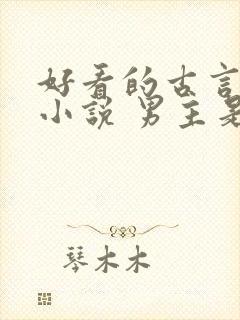 好看的古言
小说 男主是
琴木木